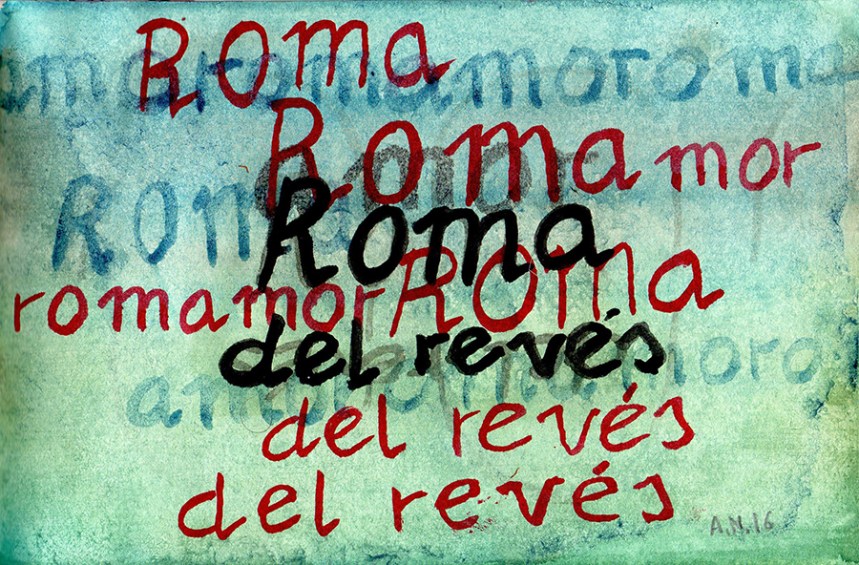 Roma
amoromamoroma
Romamor
Roma
Roma
romamorRoma
del revés
amoromamoro
del revés
del revés
A.N.16